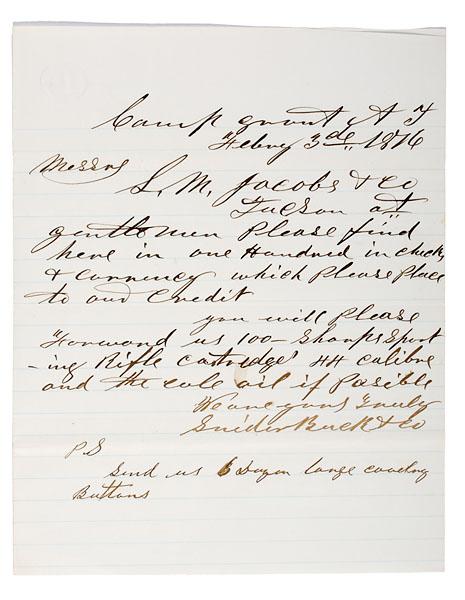 Camp grant A T
Febry 3de, 1876
Messrs
L. M. Jacobs & co
Tucson at
gentlemen Please find
here in one Hundred in checks
& currency which Please Place
to our Credit
you will Please
Forward us 100- Sharps Sport
-ing Rifle cartridge' 44 calibre
and the cole oil if Posible
We are yours Truly
Snider Buck & co
P S
Send us 6 Dozen large
Buttons